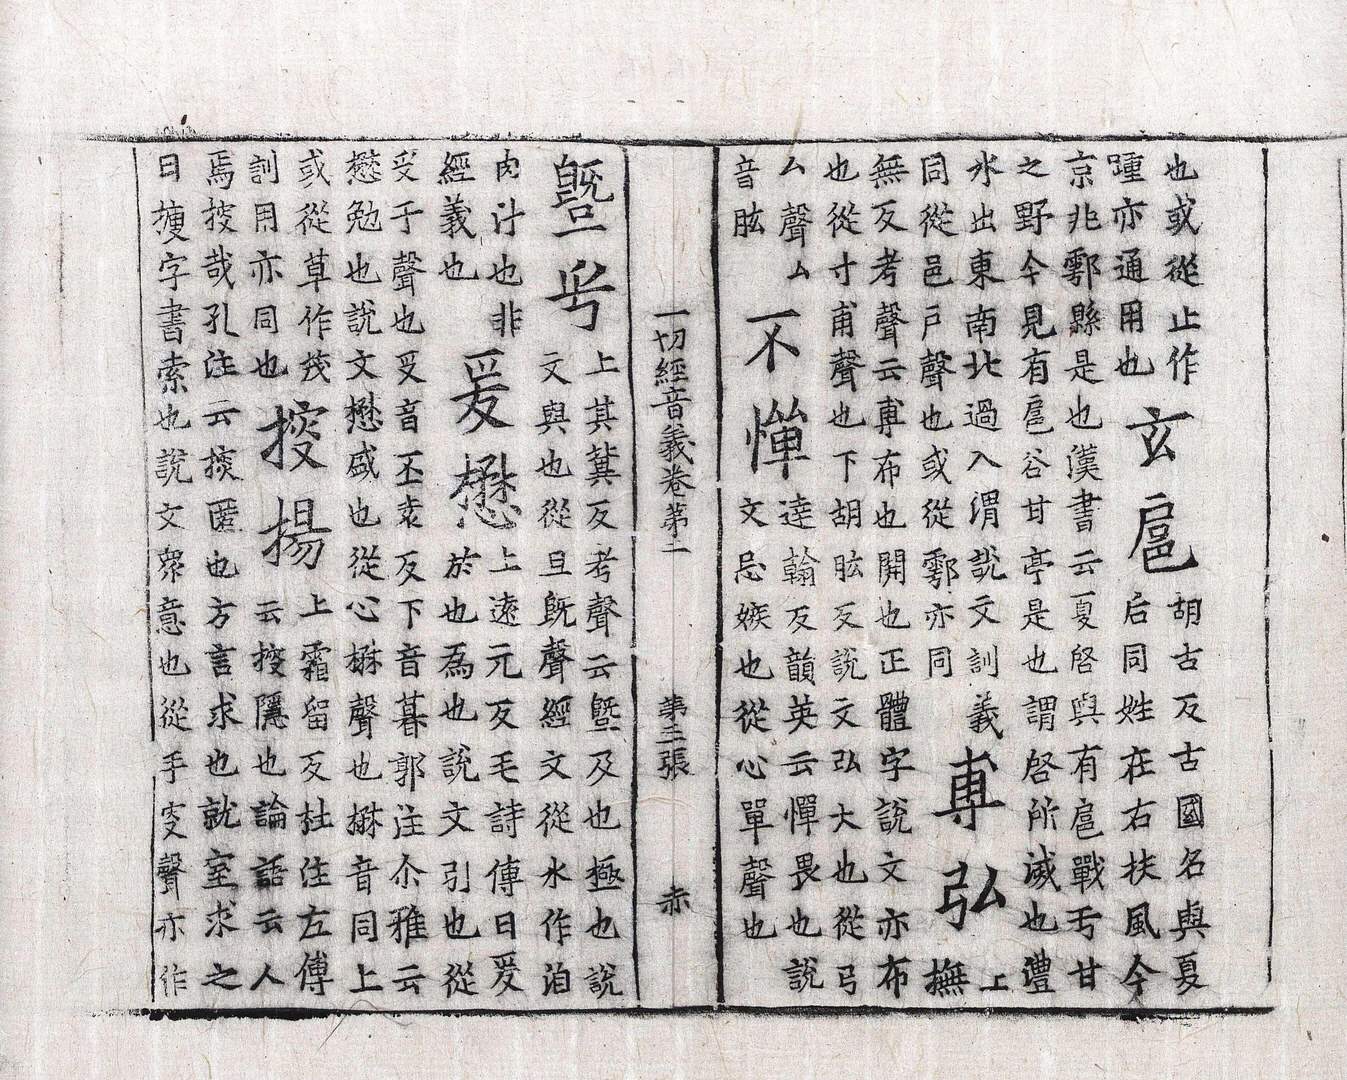 也或從止作
踵亦通用也
玄扈
胡古反古國名與夏
后同姓在右扶風今
京兆鄠縣是也漢書云夏啓與有扈戰于甘
之野今見有扈谷甘亭是也謂啓所滅也澧
水出東南北過入渭說文訓義
同從邑戶聲也或從鄠亦同
尃弘
上
撫
無反考聲云尃布也開也正體字說文亦布
也從寸甫聲也下胡肱反說文弘大也從弓
厶聲厶
音肱
不憚
達翰反韻英云憚畏也說
文忌嫉也從心單聲也
一切經音義卷第二 第三張 赤
曁乎
上其冀反考聲云曁及也極也說
文與也從旦旣聲經文從水作洎
肉汁也非
經義也
爰懋
上遠元反毛詩傳曰爰
於也為也說文引也從
𠬪于聲也𠬪音丕表反下音暮郭注尒雅云
懋勉也說文懋盛也從心楙聲也楙音同上
或從草作茂
訓用亦同也
搜揚
上霜留反杜注左傳
云搜隱也論語云人
焉搜哉孔注云搜匿也方言求也就室求之
曰搜字書索也說文衆意也從手叜聲亦作